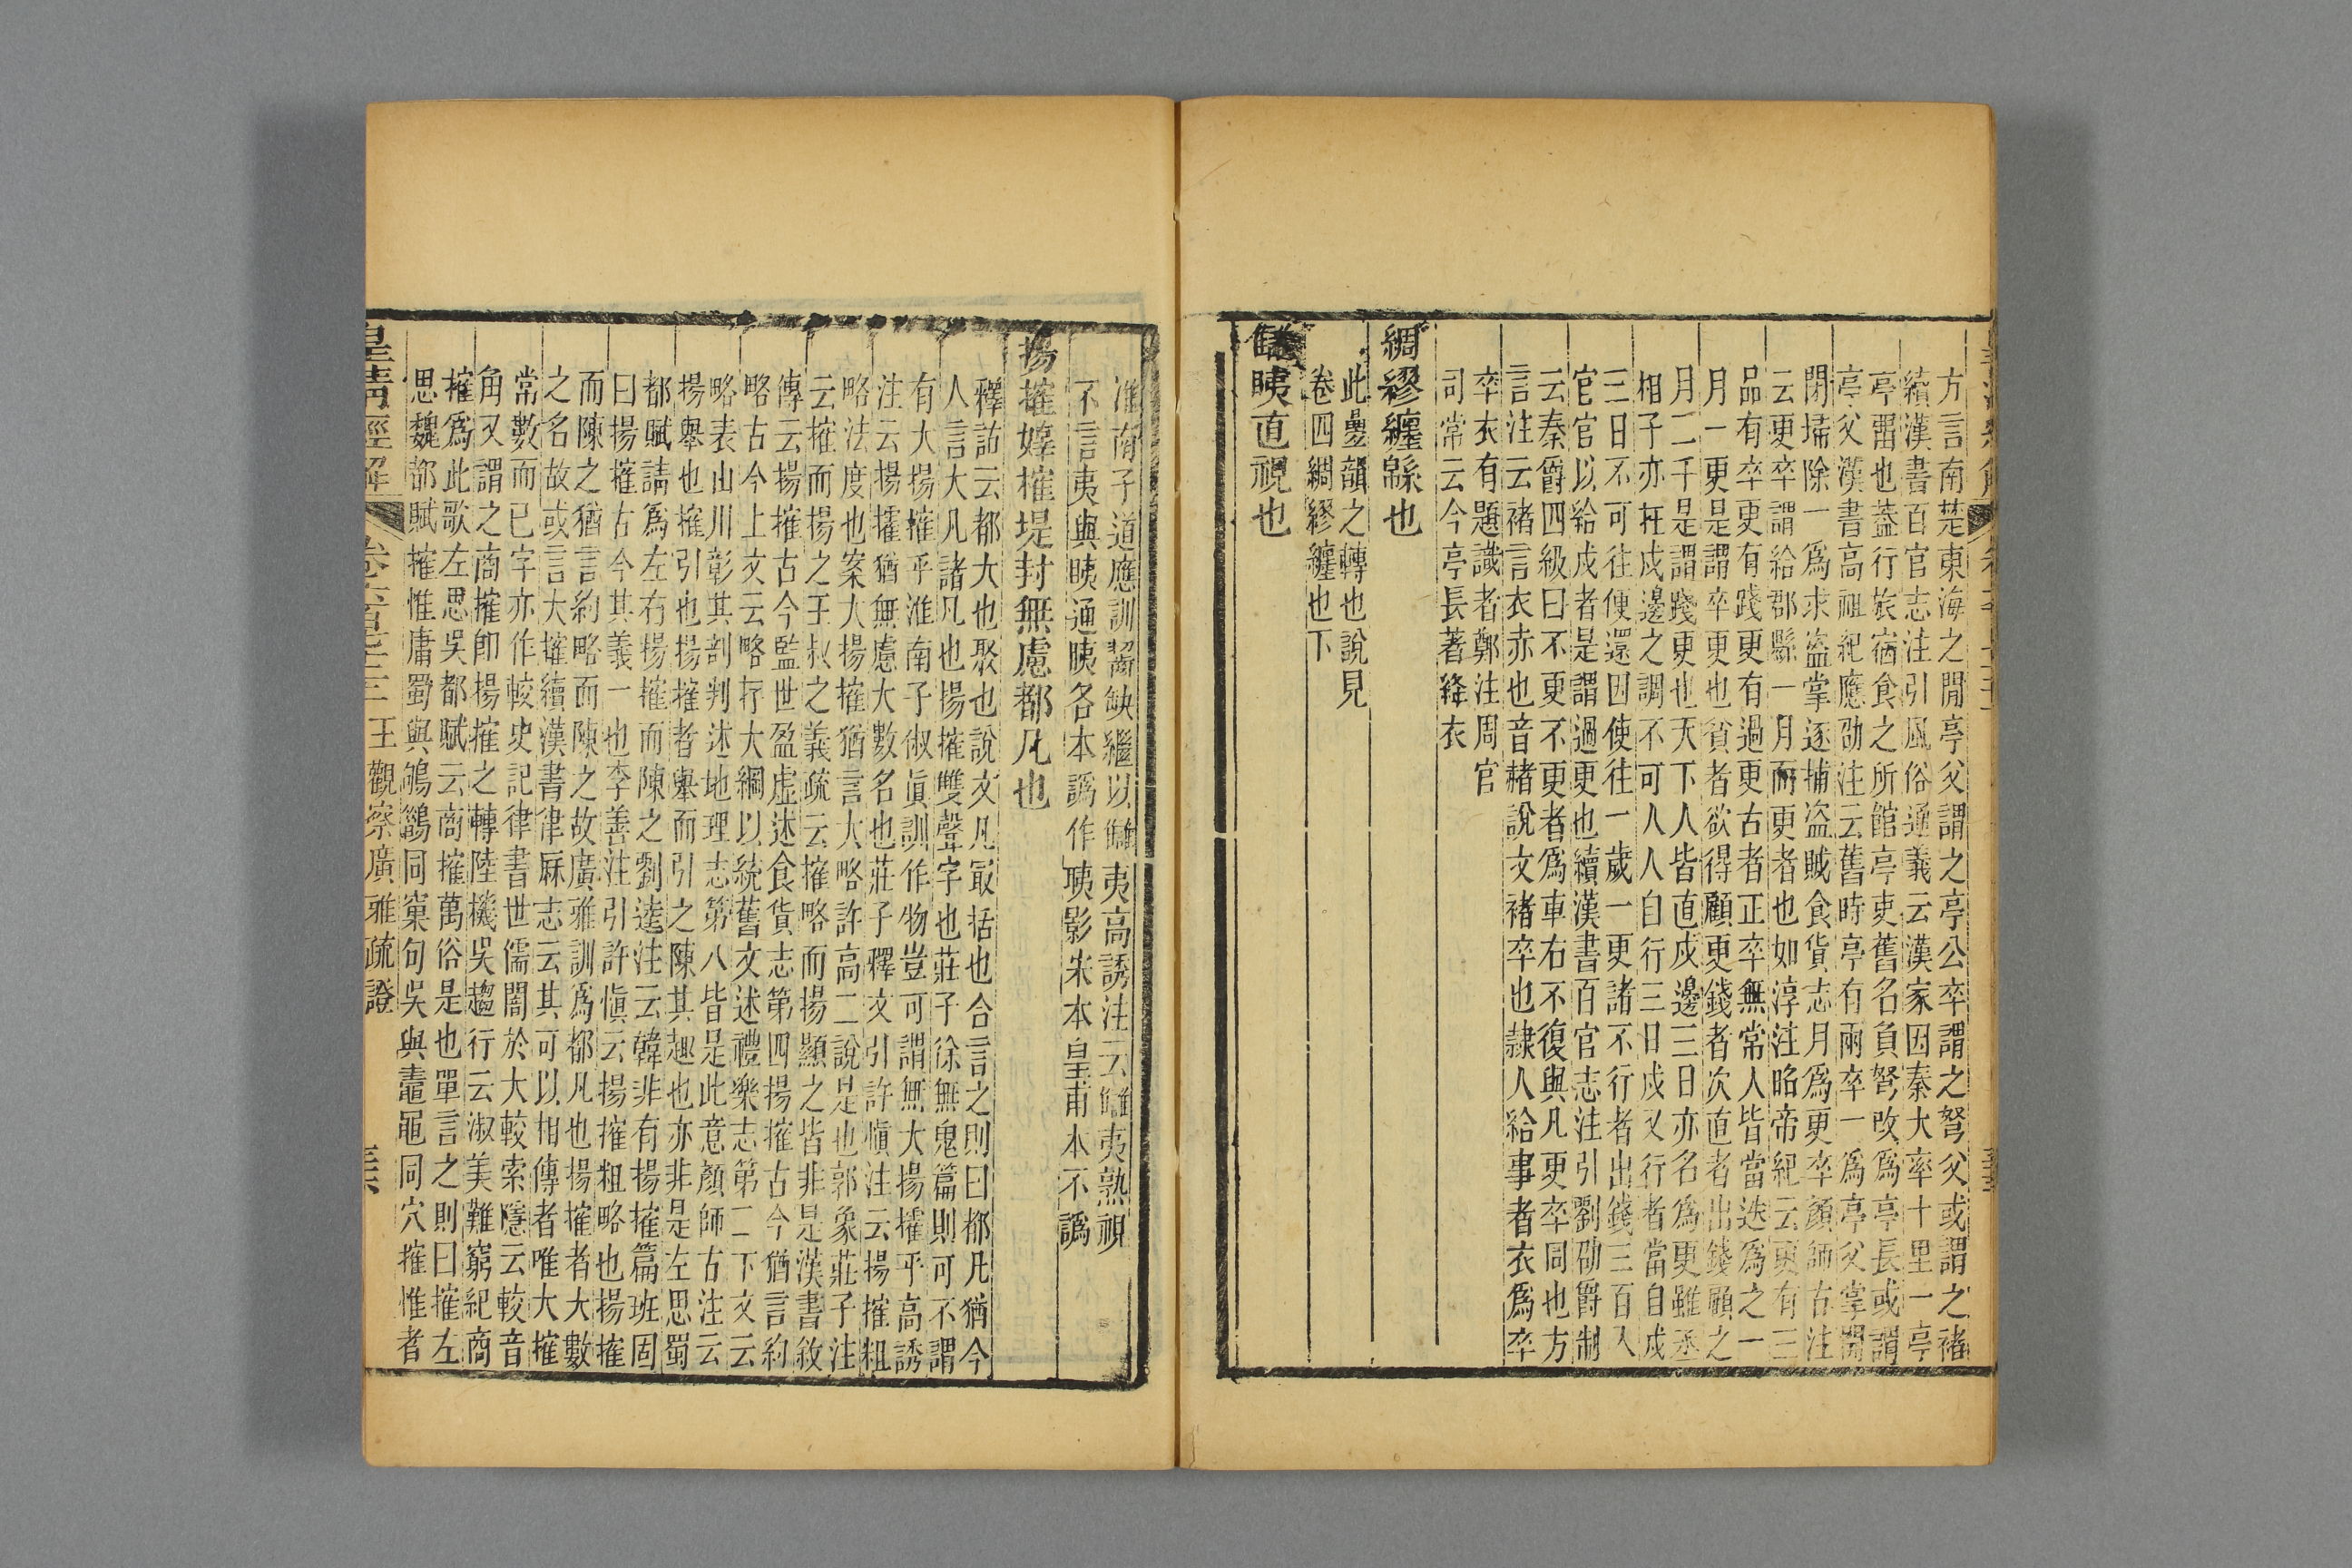 方言南楚東海之閒亭父謂之亭公卒謂之弩父或謂之褚
續漢書百官志注引風俗通義云漢家因秦大率十里一亭
亭畱也葢行旅宿食之所館亭吏舊名負弩改爲亭長或謂
亭父漢書高祖紀應劭注云舊時亭有兩卒一爲亭父掌開
閉埽除一爲求盜掌逐捕盜賊食貨志月爲更卒顏師古注
云更卒謂給郡縣一月而更者也如淳注昭帝紀云更有三
品有卒更有踐更有過更古者正卒無常人皆當迭爲之一
月一更是謂卒更也貧者欲得顧更錢者次直者出錢顧之
月二千是謂踐更也天下人皆直戍邊三日亦名爲更雖丞
相子亦在戍邊之調不可人人自行三日戍又行者當自戍
三日不可往便還因使往一歲一更諸不行者出錢三百入
官官以給戍者是謂過更也續漢書百官志注引劉劭爵制
云秦爵四級曰不更不更者爲車右不復與凡更卒同也方
言注云褚言衣赤也音赭說文褚卒也隷人給事者衣爲卒
卒衣有題識者鄭注周官
司常云今亭長著絳衣
綢繆纏緜也
此曡韻之轉也說見
卷四綢繆纏也下
讎眱直視也
淮南子道應訓齧缺繼以讎夷高誘注云讎夷熟視
不言夷與眱通眱各本譌作䀢影宋本皇甫本不譌
揚搉嫴榷堤封無慮都凡也
釋詁云都大也聚也說文凡冣括也合言之則曰都凡猶今
人言大凡諸凡也揚搉雙聲字也莊子徐無鬼篇則可不謂
有大揚搉乎淮南子俶眞訓作物豈可謂無大揚㩁乎高誘
注云揚㩁猶無慮大數名也莊子釋文引許愼注云揚搉粗
略法度也案大揚搉猶言大略許高二說是也郭象莊子注
云搉而揚之王叔之義疏云搉略而揚顯之皆非是漢書敘
傳云揚搉古今監世盈虛述食貨志第四揚搉古今猶言約
略古今上文云略存大綱以統舊文述禮樂志第二下文云
略表山川彰其剖判述地理志第八皆是此意顏師古注云
揚舉也搉引也揚搉者舉而引之陳其趣也亦非是左思蜀
都賦請爲左右揚搉而陳之劉逵注云韓非有揚搉篇班固
曰揚搉古今其義一也李善注引許愼云揚搉粗略也揚搉
而陳之猶言約略而陳之故廣雅訓爲都凡也揚搉者大數
之名故或言大搉續漢書律厤志云其可以相傳者唯大搉
常數而已字亦作較史記律書世儒闇於大較索隱云較音
角又謂之商搉卽揚搉之轉陸機吳趨行云淑美難窮紀商
搉爲此歌左思吳都賦云商搉萬俗是也單言之則曰搉左
思魏都賦搉惟庸蜀與鴝鵒同窠句吳與鼃黽同穴搉惟者
皇淸經解
卷六百七十三
王觀察廣雅疏證